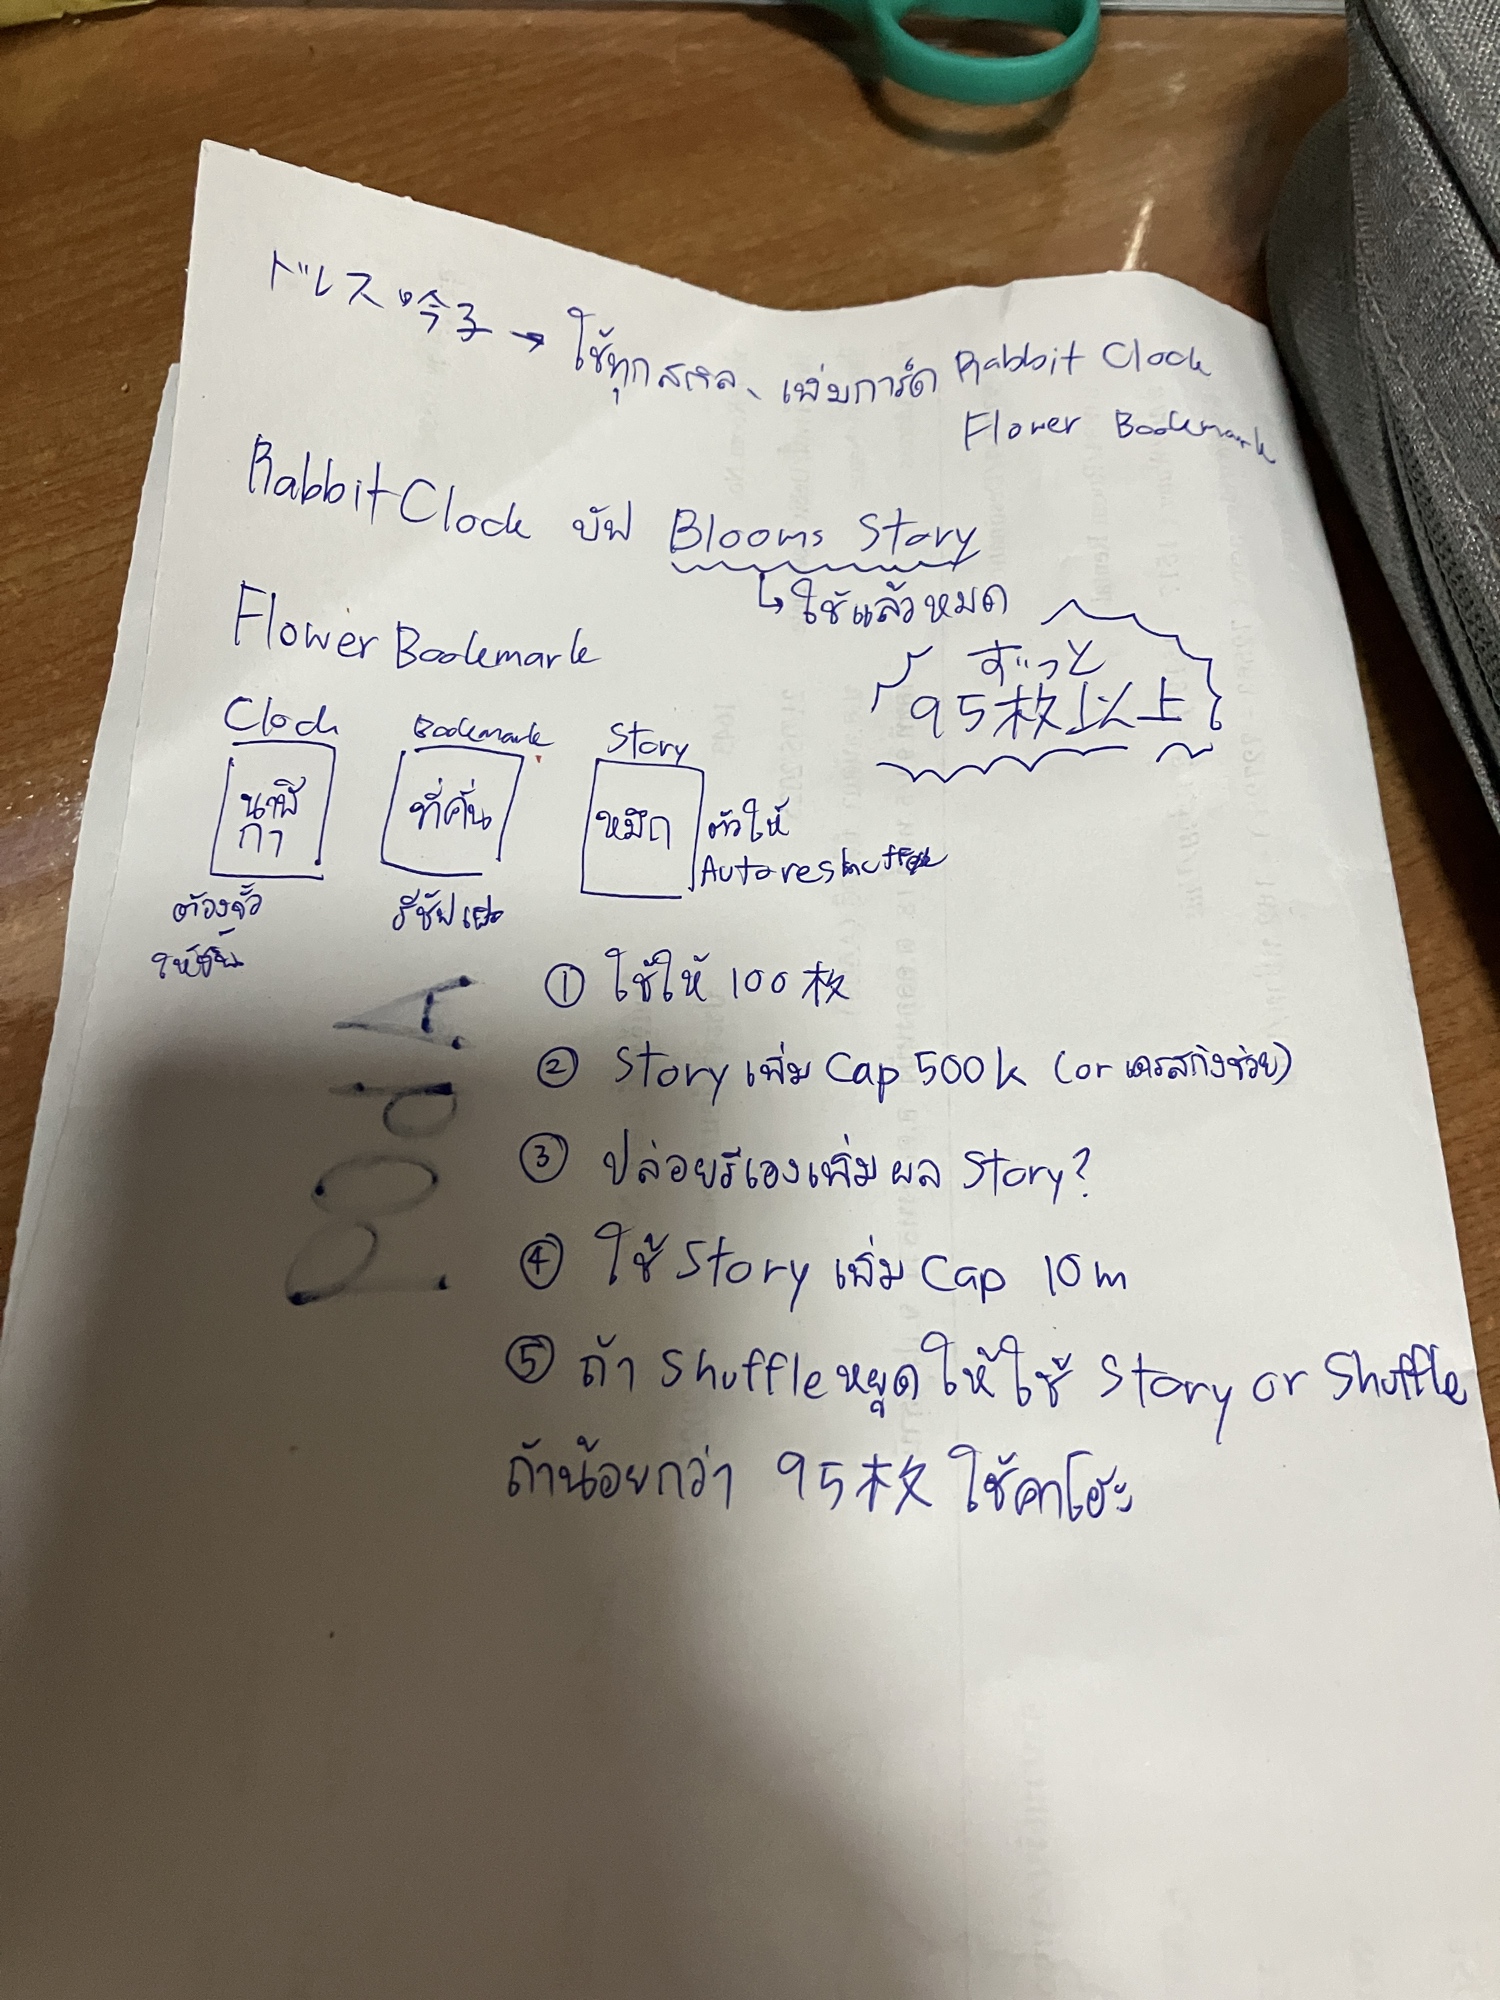 ドレス吟子 → ใช้ทุกสกิล、เพิ่มการ์ด Rabbit Clock
Flower Bookmark
Rabbit Clock บัฟ Blooms Story
↳ ใช้แล้วหมด
Flower Bookmark
ずっと
95枚以上
Clock Bookmark Story
นาฬิกา ที่คั่น หมึก
ตัวให้
Autoreshuffle
ต้องจั่ว รีชัฟเฟิล
ให้ขึ้น
① ใช้ให้ 100枚
② Story เพิ่ม Cap 500k (or เดรสกิงช่วย)
③ ปล่อยรีเองเพิ่มผล Story?
④ ใช้ Story เพิ่ม Cap 10m
⑤ ถ้า Shuffle หยุด ให้ใช้ Story or Shuffle
ถ้าน้อยกว่า 95枚 ใช้คาโฮะ